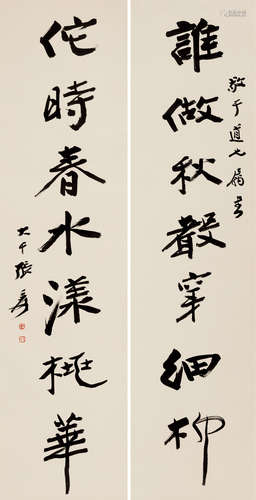 誰做秋聲穿細柳
敬于道之屬書
佗時春水漾桃華
大千張爰